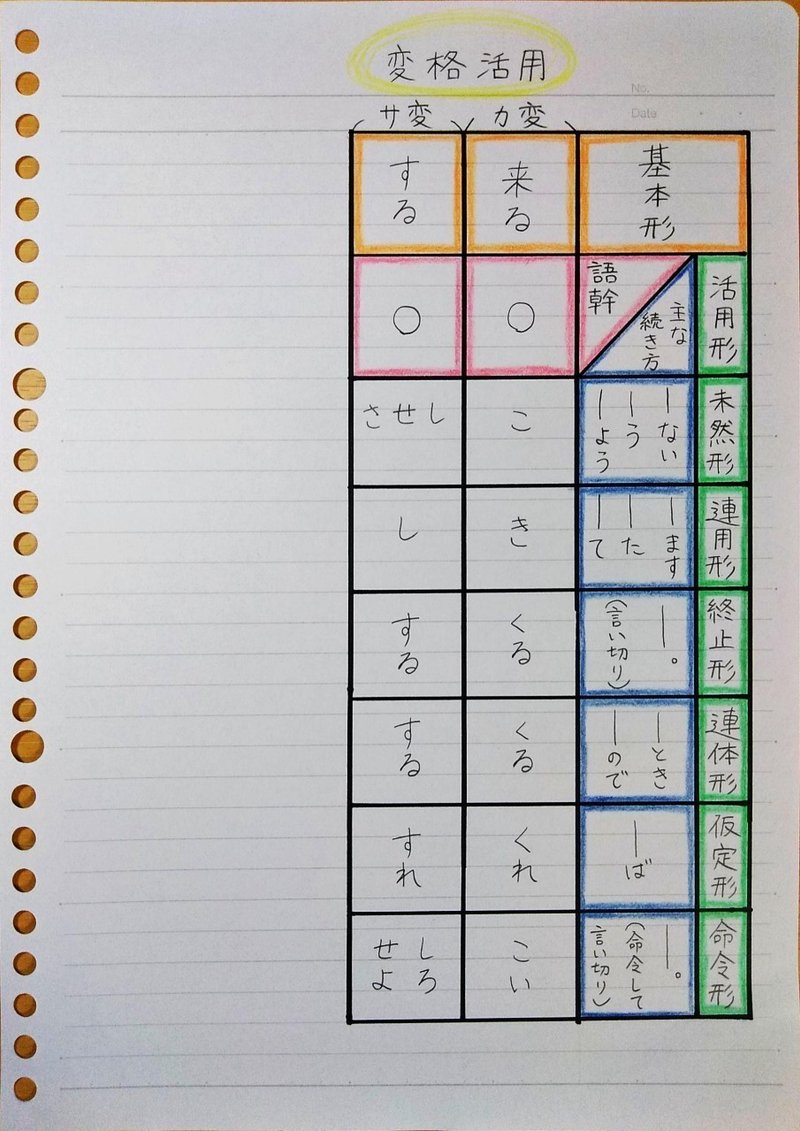 No.
Date
変格活用
基本形
活用形
主な
続き方
語幹
未然形
―ない
―う
―よう
連用形
―ます
―た
―て
終止形
―。
(言い切り)
連体形
―とき
―ので
仮定形
―ば
命令形
―。
(命令して
言い切り)
カ変
来る
○
こ
き
くる
くる
くれ
こい
サ変
する
○
し
せ
さ
し
する
する
すれ
しろ
せよ